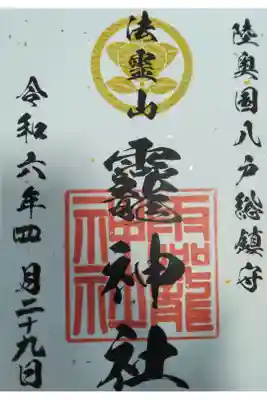 陸奥国八戸総鎮守
法霊山
龗神社
龗神社
令和六年四月二十九日